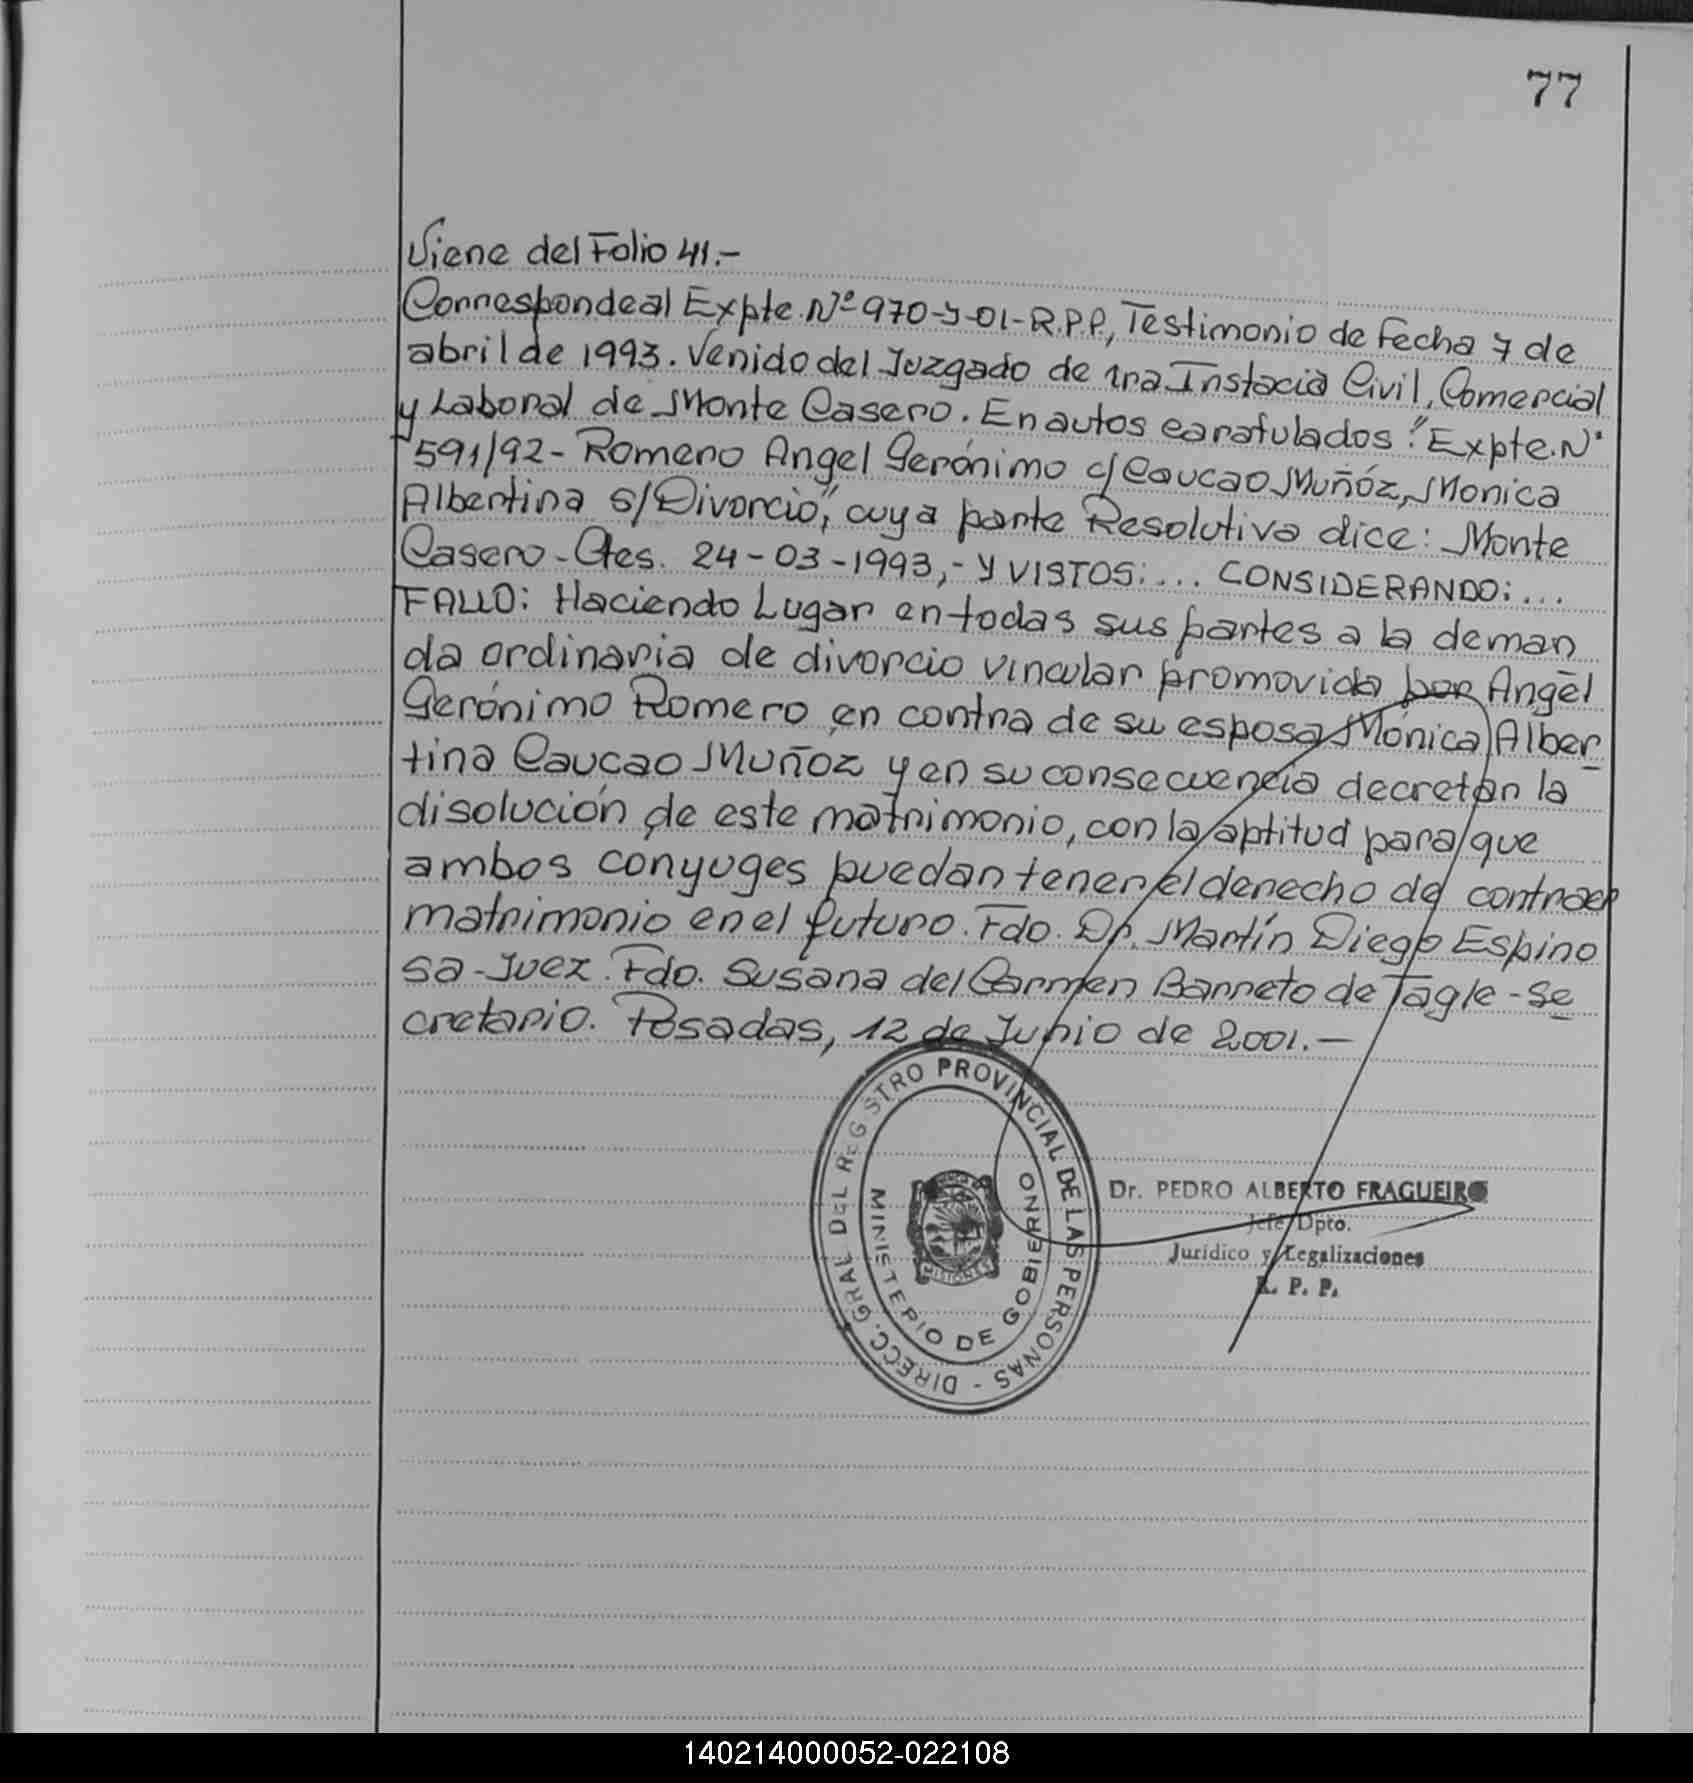 77
Viene del Folio 41.-
Corresponde al Expte. Nº 970-J-01-R.P.P, Testimonio de Fecha 7 de
abril de 1993. Venido del Juzgado de 1ra Instacia Civil, Comercial
y Laboral de Monte Casero. En autos caratulados: "Expte. Nº
591/92- Romero Angel Gerónimo c/ Caucao Muñóz, Monica
Albertina s/ Divorcio", cuya parte Resolutiva dice: Monte
Casero - Ctes. 24-03-1993,- Y VISTOS:... CONSIDERANDO:...
FALLO: Haciendo Lugar en todas sus partes a la deman
da ordinaria de divorcio vincular promovida por Angel
Gerónimo Romero en contra de su esposa Mónica Alber
tina Caucao Muñoz y en su consecuencia decretan la
disolución de este matrimonio, con la aptitud para que
ambos conyuges puedan tener el derecho de contraer
matrimonio en el futuro. Fdo. Dr. Martín Diego Espino
sa - Juez. Fdo. Susana del Carmen Barreto de Tagle - Se
cretario. Posadas, 12 de Junio de 2001.-
DIRECC. GRAL DEL REGISTRO PROVINCIAL DE LAS PERSONAS -
MINISTERIO DE GOBIERNO
MISIONES
Dr. PEDRO ALBERTO FRAGUEIRO
Jefe Dpto.
Jurídico y Legalizaciones
R. P. P.
140214000052-022108